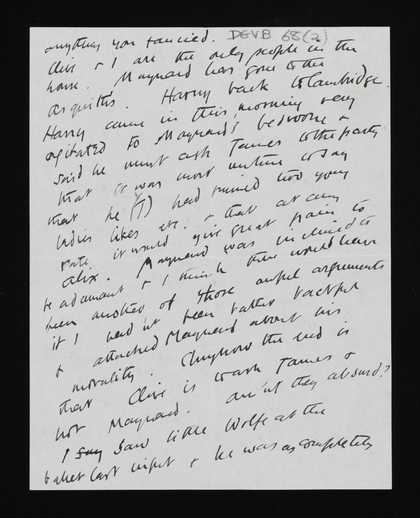 anything you fancied. DGVB 68(2)
Clive & I are the only people in the
house. Maynard has gone to the
Asquiths. Harry back to Cambridge.
Harry came in this morning very
agitated to Maynard's bedroom &
said he must ask James to the party
that it was most unfair to say
that he (J) had ruined two young
ladies lives etc. & that at any
rate it would give great pain to
Alix. Maynard was inclined to
be adamant & I think there would have
been another of those awful arguments
if I hadn't been rather tactful
& attacked Maynard about his
morality. Anyhow the end is
that Clive is to ask James &
not Maynard. aren't they absurd?
I say saw little Wolfe at the
ballet last night & he was as completely